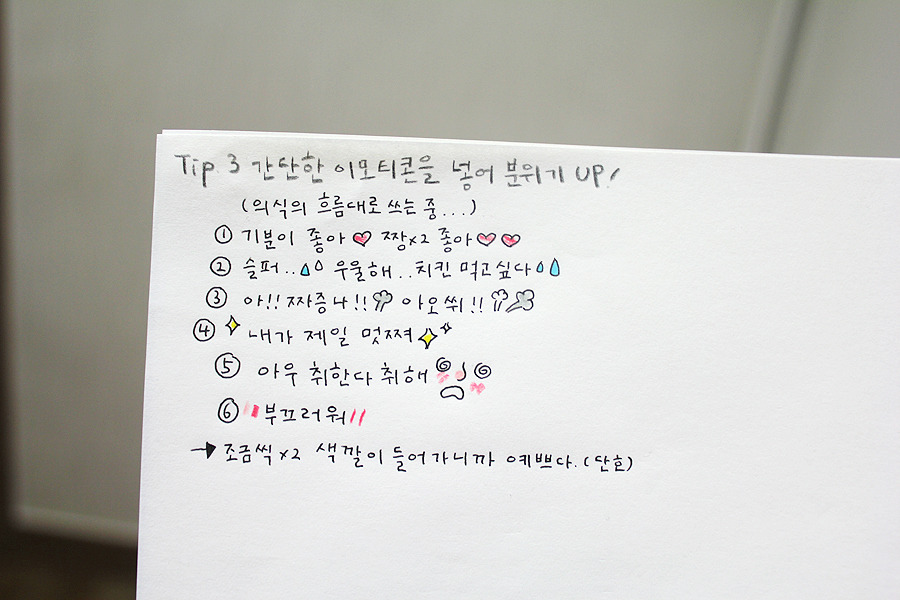 Tip. 3 간단한 이모티콘을 넣어 분위기 UP!
(의식의 흐름대로 쓰는 중...)
① 기분이 좋아♥ 짱x2 좋아♥♥
② 슬퍼.. 우울해.. 치킨 먹고싶다
③ 아!! 짜증나!! 아오쒸!!
④ 내가 제일 멋쪄
⑤ 아우 취한다 취해
⑥ 부끄러워
→ 조금씩x2 색깔이 들어가니까 예쁘다. (단호)